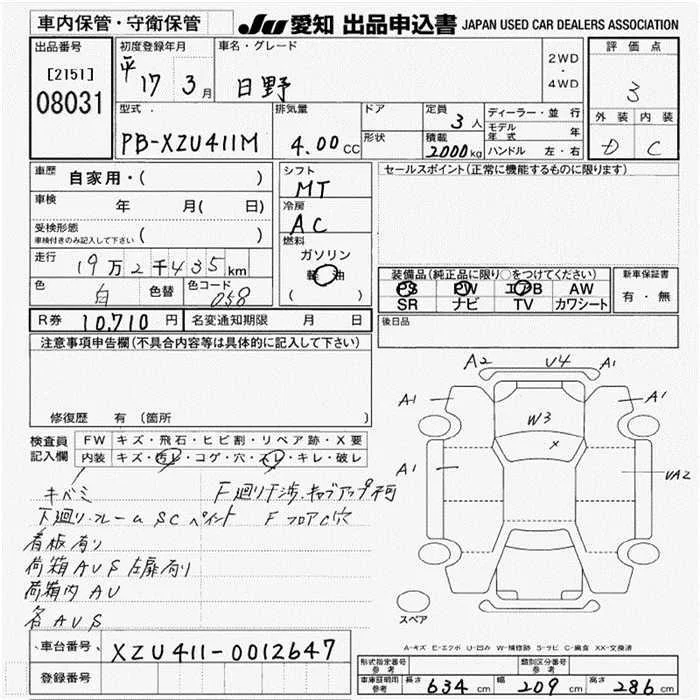 車内保管・守衛保管
JU 愛知 出品申込書 JAPAN USED CAR DEALERS ASSOCIATION
出品番号
[2151]
08031
初度登録年月
平17年3月
車名・グレード
日野
2WD
・
4WD
評価点
3
外装 内装
D C
型式
PB-XZU411M
排気量
4.00 CC
ドア
形状
定員
3人
積載
2000kg
ディーラー・並行
モデル年式 年
ハンドル 左・右
車歴 自家用・( )
車検 年 月( 日)
受検形態
車検付きのみ記入して下さい ( )
走行
19万2千435km
色
白
色替
色コード
058
シフト
MT
冷房
AC
燃料
ガソリン
軽油
( )
セールスポイント(正常に機能するものに限ります)
装備品(純正品に限り○をつけてください)
PS PW エアB AW
SR ナビ TV カワシート
新車保証書
有・無
後日品
R券 10,710円
名変通知期限 月 日
注意事項申告欄(不具合内容等は具体的に記入して下さい)
修復歴 有(箇所
検査員記入欄
FW キズ・飛石・ヒビ割・リペア跡・X要
内装 キズ・汚レ・コゲ・穴・スレ・キレ・破レ
キバミ
F廻り干渉.キャブアップ不可
下廻り.フレームSCペイント FフロアC穴
看板有り
荷箱AUS左扉有り
荷箱内AU
各AUS
A2 U4 A1
A1 A1
W3
×
A1
UA2
スペア
A-キズ E-エクボ U-凹み W-補修跡 S-サビ C-腐食 XX-交換済
車台番号 XZU411-0012647
登録番号
形式指定番号 参考
類別区分番号 参考
車庫証明用 参考 長さ 634cm 幅 209cm 高さ 286cm